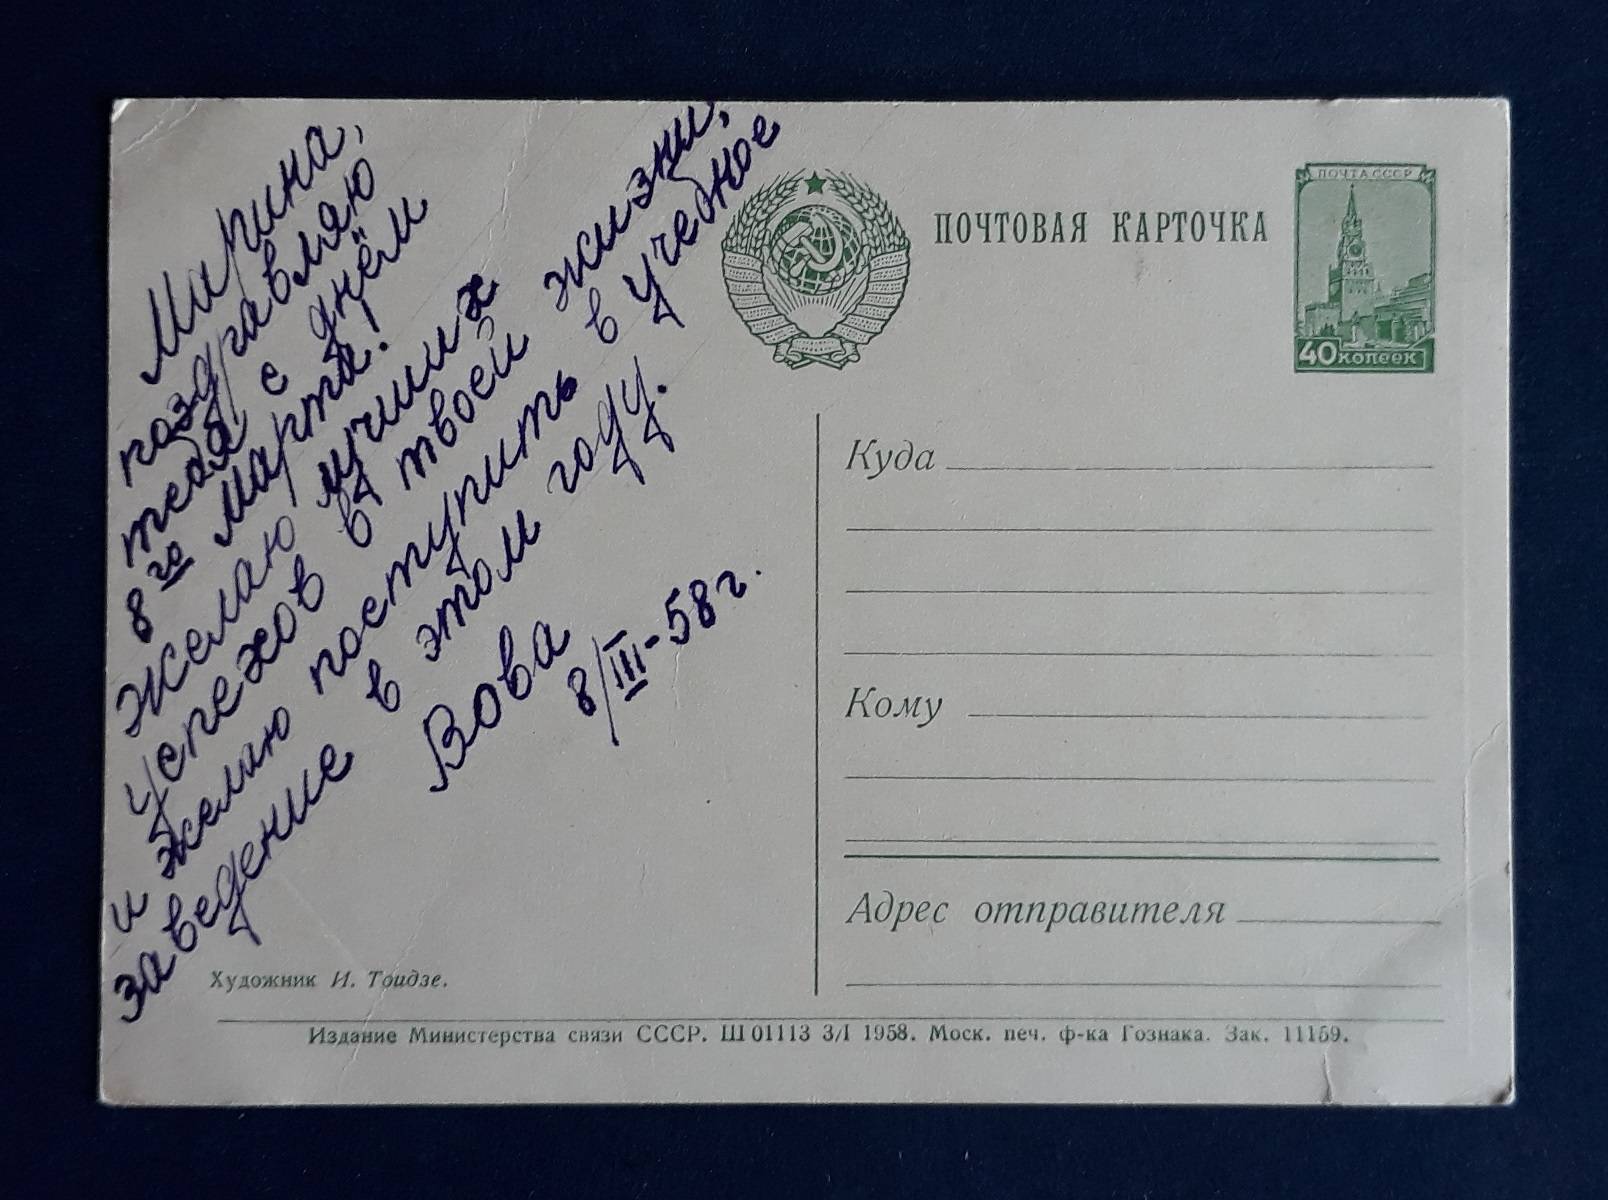 Марина,
поздравляю
тебя с днём
8го марта!
Желаю лучших
успехов в твоей жизни,
и желаю поступить в учебное
заведение в этом году.
Вова
8/III-58г.
Художник И. Тоидзе.
ПОЧТОВАЯ КАРТОЧКА
ПОЧТА СССР
40 КОПЕЕК
Куда
Кому
Адрес отправителя
Издание Министерства связи СССР. Ш 01113 3/I 1958. Моск. печ. ф-ка Гознака. Зак. 11159.